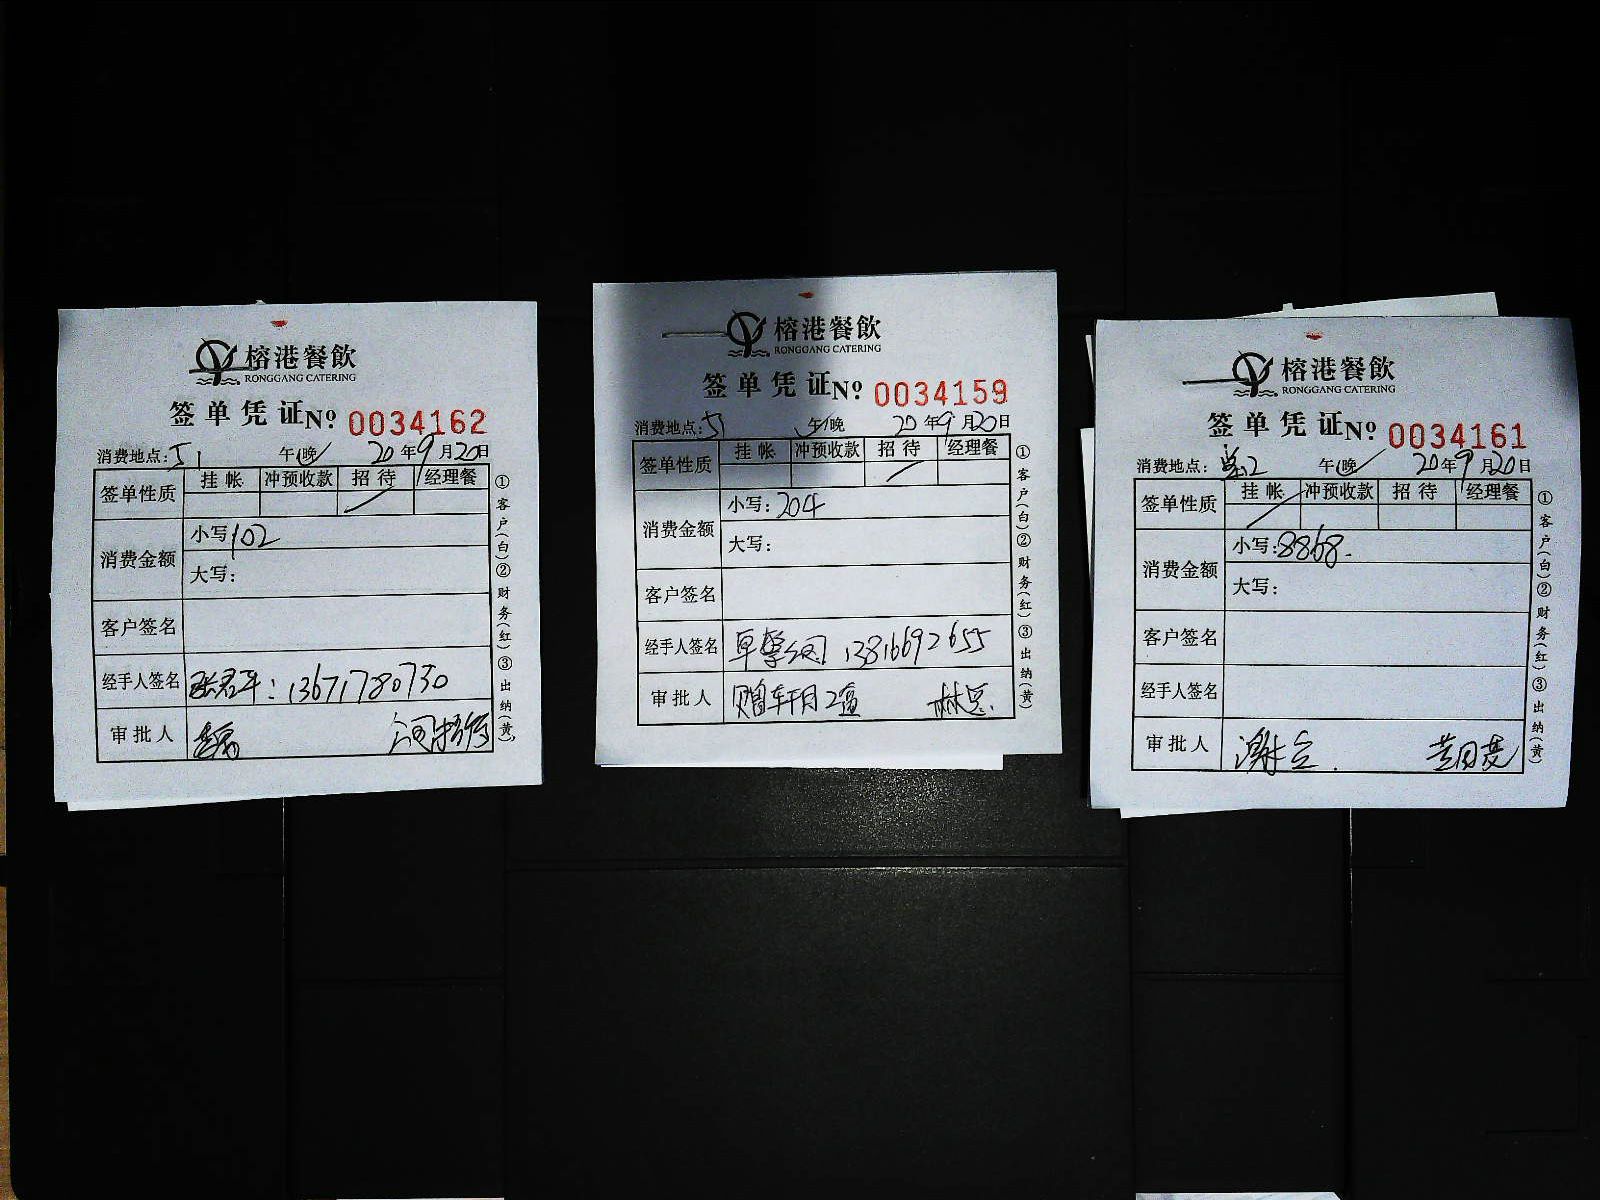 榕港餐飲
RONGGANG CATERING
签单凭证 № 0034162
消费地点: 午/晚 20年9月20日
签单性质 挂帐 冲预收款 招待 经理餐
消费金额 小写: 102
大写:
客户签名
经手人签名 13671780730
审批人
①客户(白)②财务(红)③出纳(黄)
榕港餐飲
RONGGANG CATERING
签单凭证 № 0034159
消费地点: 午/晚 20年9月20日
签单性质 挂帐 冲预收款 招待 经理餐
消费金额 小写: 204
大写:
客户签名
经手人签名 13816692655
审批人
①客户(白)②财务(红)③出纳(黄)
榕港餐飲
RONGGANG CATERING
签单凭证 № 0034161
消费地点: 午/晚 20年9月20日
签单性质 挂帐 冲预收款 招待 经理餐
消费金额 小写: 8868.
大写:
客户签名
经手人签名
审批人
①客户(白)②财务(红)③出纳(黄)